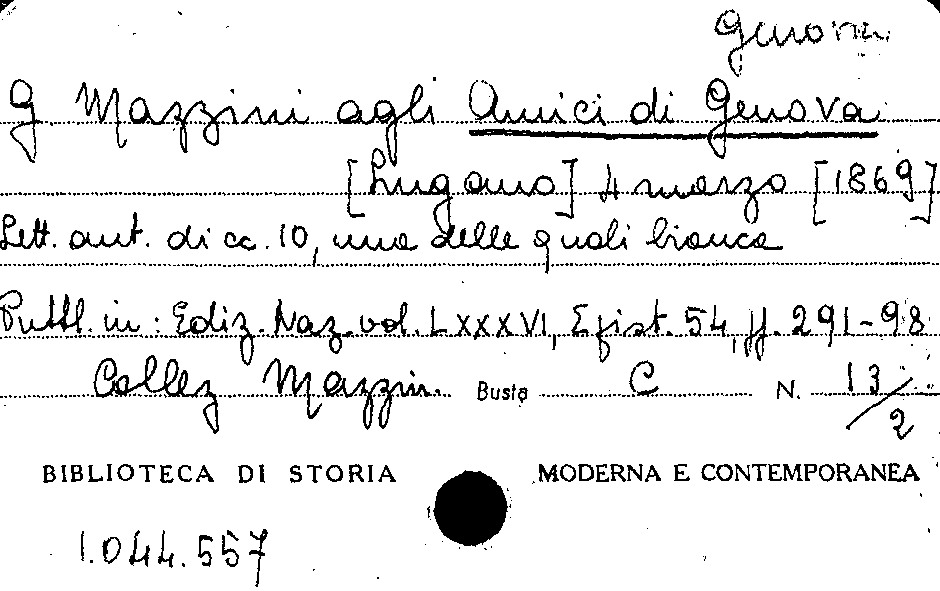 Genova
G. Mazzini agli Amici di Genova
[Lugano] 4 marzo [1869]
Lett. aut. di cc. 10, una delle quali bianca
Pubbl. in: Ediz. Naz. vol. LXXXVI, Epist. 54, pp. 291-98
Collez Mazzini Busta C N. 13/2
BIBLIOTECA DI STORIA MODERNA E CONTEMPORANEA
1.044.557